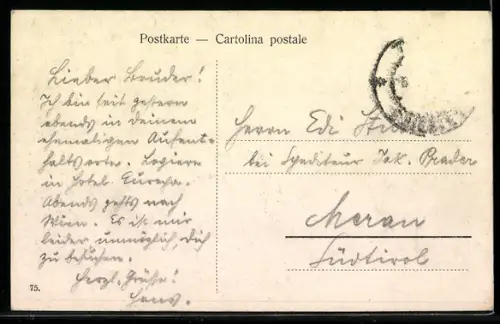 Postkarte — Cartolina postale
Lieber Bruder!
Ich bin seit gestern
abends in deinem
ehemaligen Aufent-
haltsorte. Logiere
in Hotel Europa.
Abends gehts nach
Wien. Es ist mir
leider unmöglich, dich
zu besuchen.
Herzl. Grüße!
Hans.
75.
Herrn Edi
bei Spediteur Jak. Prader
Meran
Südtirol